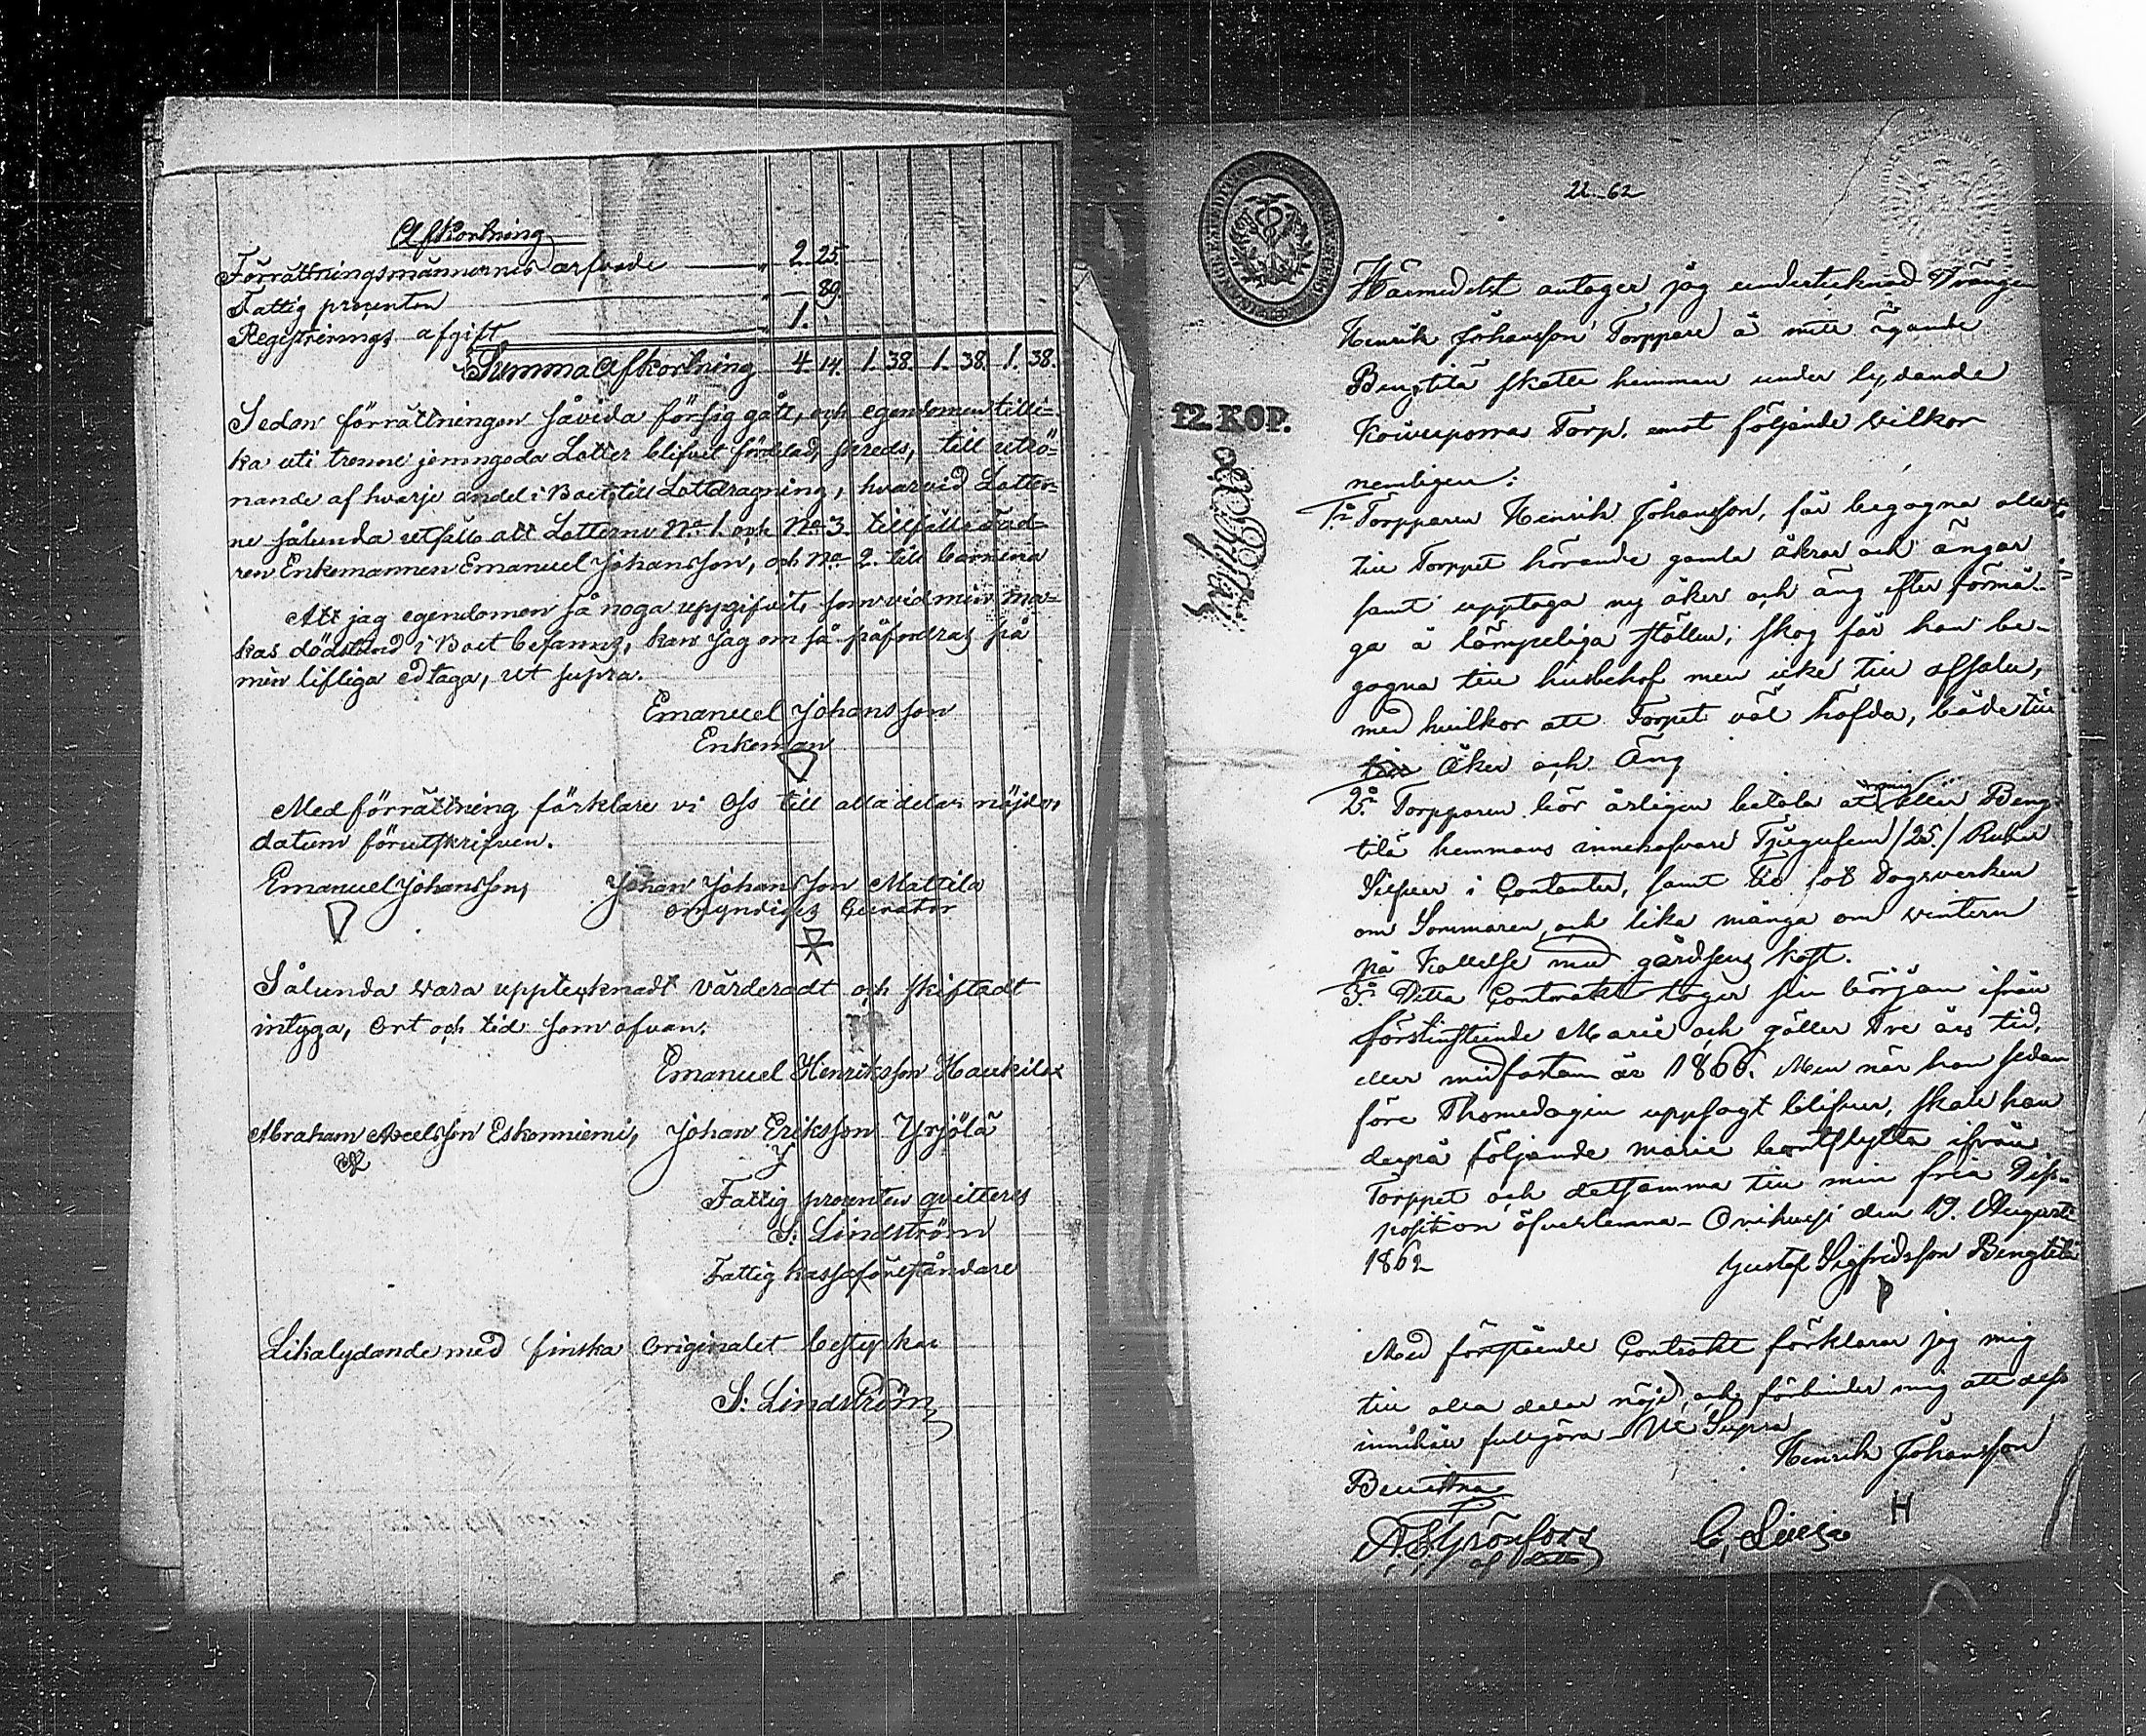 Afkortning
Förrättningsmännernes arfvode 2. 25.
Fattig procenten 89.
Registrerings afgift 1.
Summa Afkortning 4. 14. 1. 38. 1. 38. 1. 38.
Sedan förrättningen såvida försig gått, och egendomen tilli=
ka uti trenne jemngoda Lotter blifvit fördelad, skreds, till utrö=
nande af hvarje andel i Boet till Lottdragning, hvarvid Lotter=
ne sålunda utföllo att Lotterne No 1. och No 3. tillföllo Fad=
ren Enkemannen Emanuel Johansson, och No 2. till barnena
Att jag egendomen så noga uppgifvit, som vid min ma=
kas dödstund i Boet befanns, kan jag om så påfordras på
min lifliga ed taga, ut supra.
Emanuel Johansson
Enkeman
Med förrättning förklare vi Oss till alla delar nöjde,
datum förutskrifven.
Emanuel Johansson, Johan Johansson Mattila
omyndiges Curator
Sålunda vara upptecknadt värderadt och skiftadt
intyga, Ort och tid som ofvan.
Emanuel Henriksson Haukila
Abraham Axelsson Eskonniemi, Johan Eriksson Yrjölä
Fattig procenten qvitteres
S: Lindström
Fattig kassaföreståndare
Likalydande med finska Originalet bestyrkar
S: Lindström
22-62
12. KOP.
Härmedelst antager jag undertecknad Drängen
Henrik Johansson Torppare å mitt ägande
Bengtilä skatte hemman under lydande
Torp. emot följande wilkor
nemligen:
1o Torpparen Henrik Johansson, får begagna alla
till Torppet hörande gamla åkrar och ängar
samt upptaga ny åker och äng efter förmå-
ga å lämpeliga ställen; skog får han be-
gagna till husbehof men icke till afsalu,
med hvilkor att Torpet väl häfda, både till
till Åker och Äng
2o Torpparen bör årligen betala åt mig eller Beng-
tilä hemmans innehafvare Tjugufem /25./ Rubel
Silfver i Contanter, samt tio Dagsverken
om Sommaren, och lika många om wintern
på Kallelse med gårdsens kost.
3o Detta Contrakt tager sin början ifrån
förstinstående Marie och gäller Tre års tid,
eller midfastan år 1866. Men när han sedan
före Thomedagen uppsagt blifver, skall han
derpå följande marie bortflytta ifrån
Torppet och detsamma till min fria Disp-
position öfverlemna - Orihvesi den 19. Augusti
1862 Gustaf Sigfridsson Bengtilä
Med förestående Contrakt förklarar jag mig
till alla delar nöjd, och förbinder mig att dess
innehåll fullgöra - Ut Supra
Henrik Johansson
H
Bevittna
Grönfors